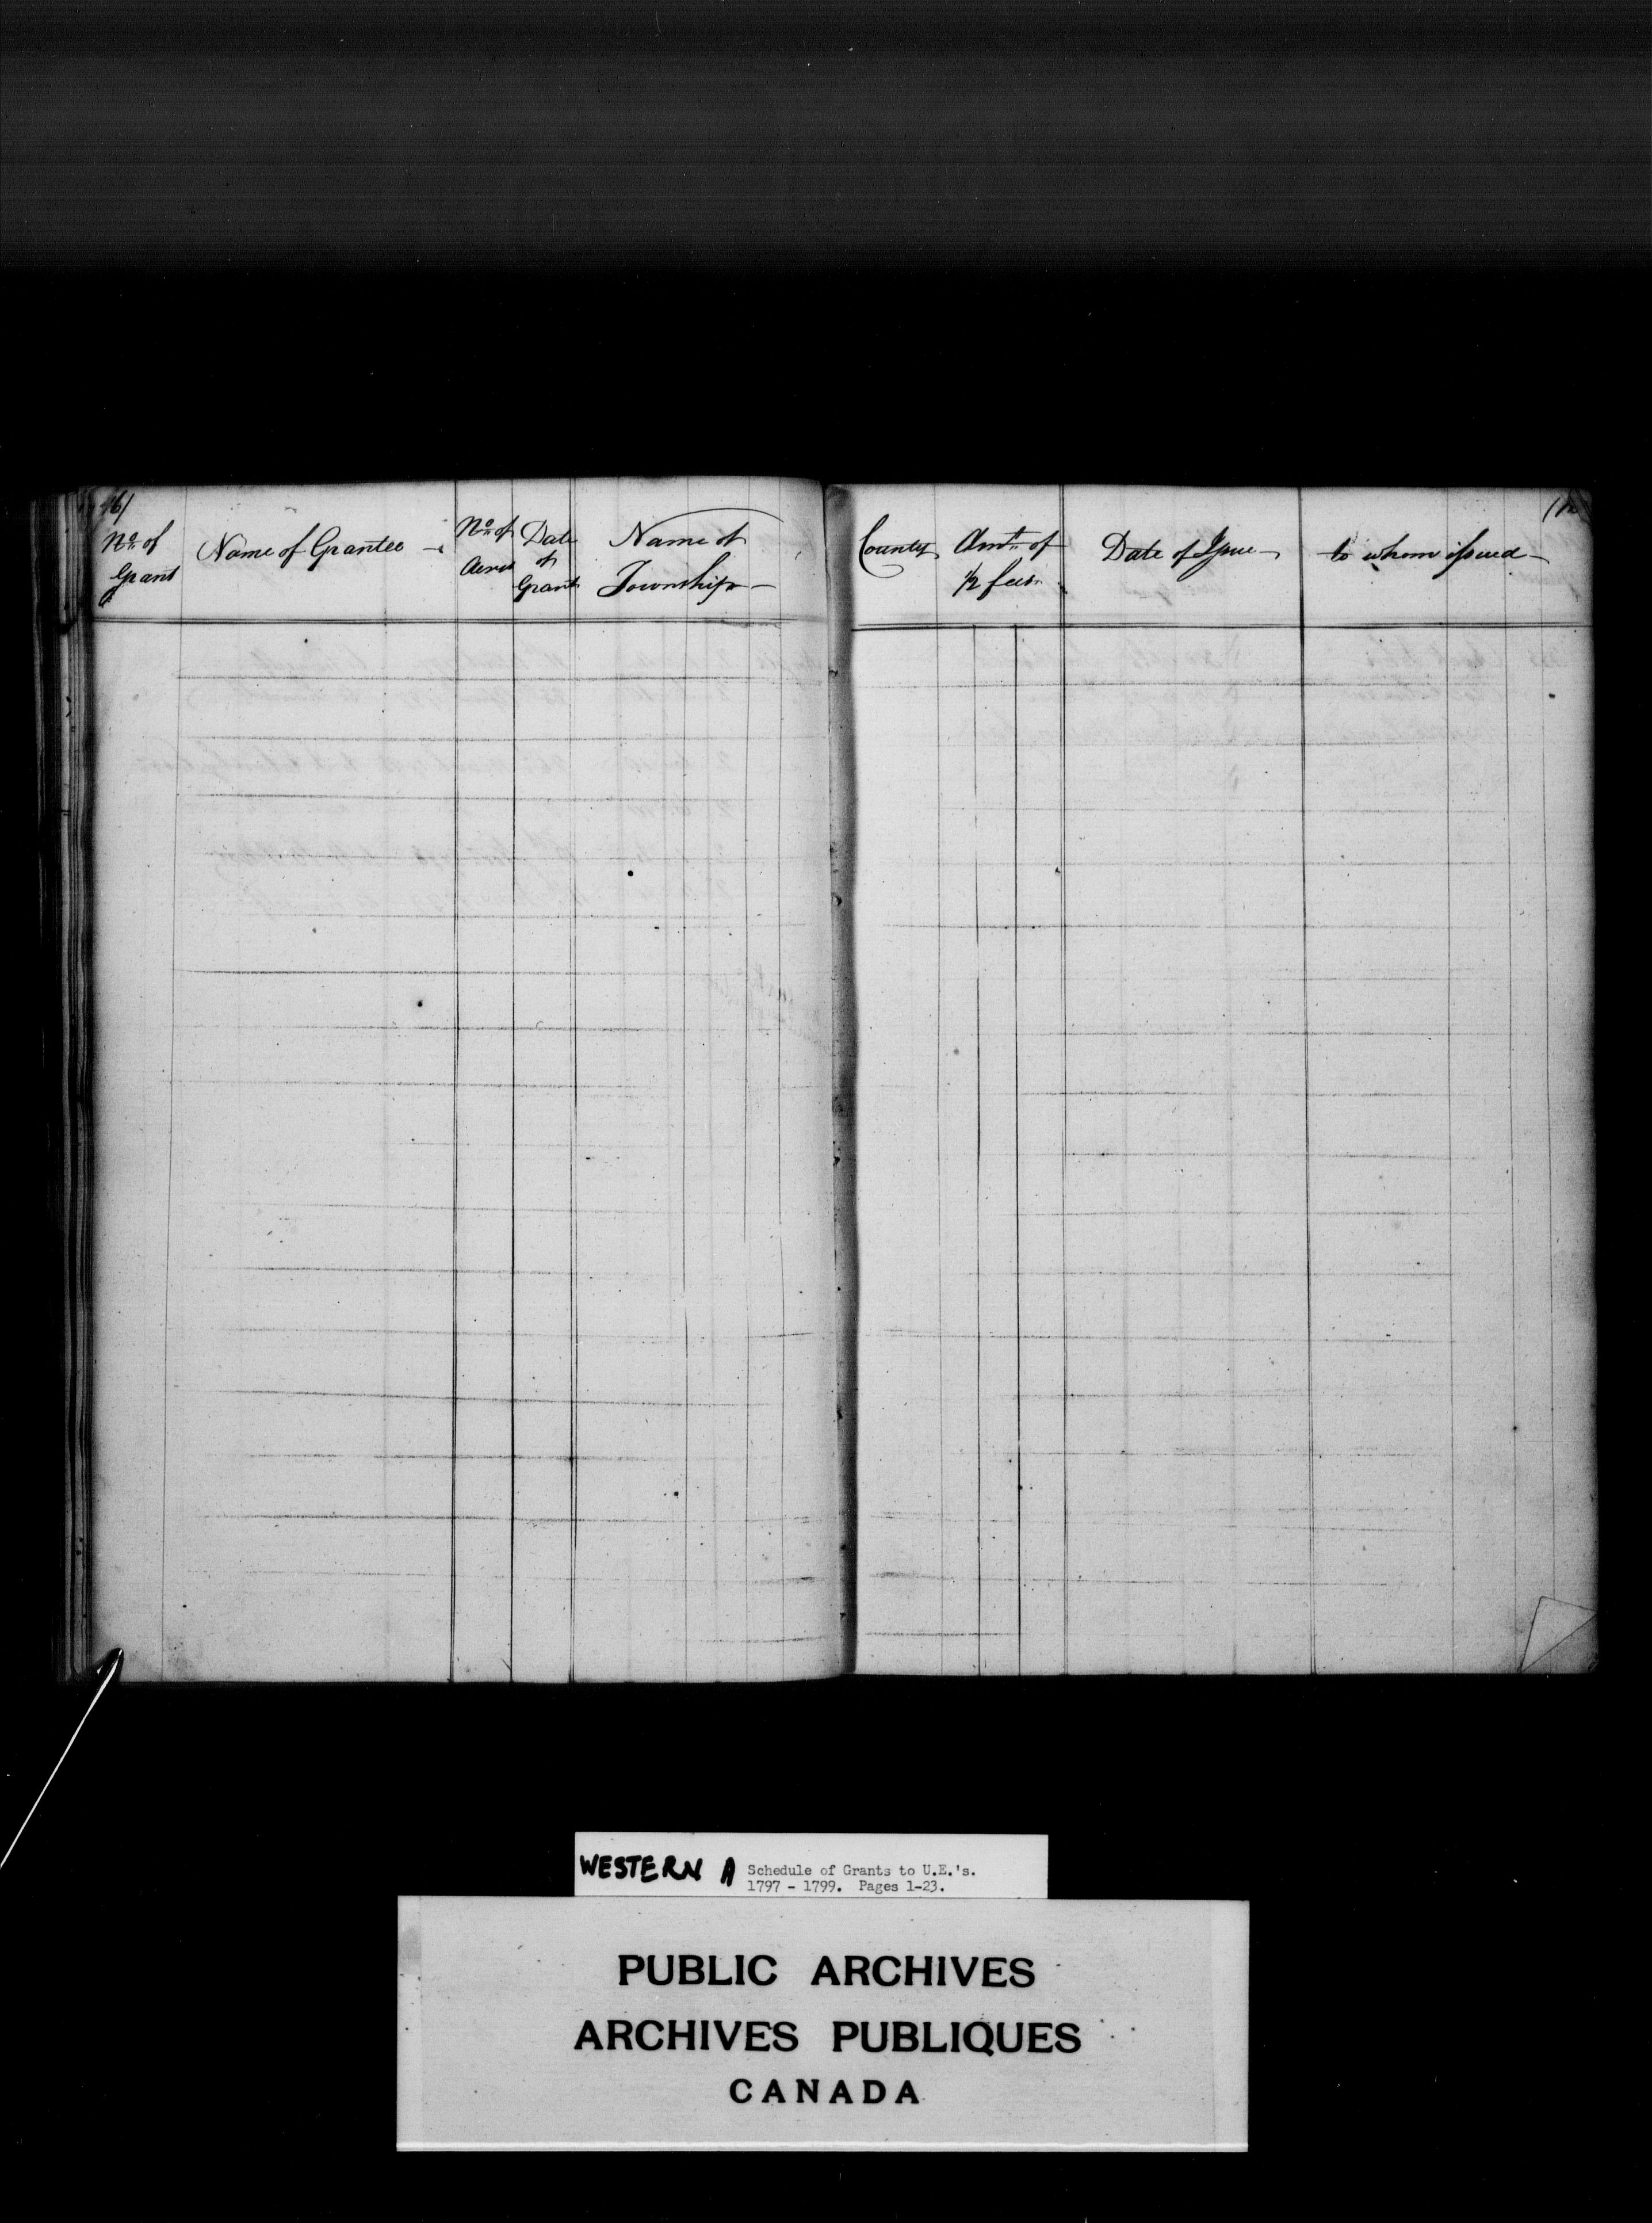 No. of Grant
Name of Grantee
No. of Acres
Date of Grant
Name of Township
County
Amt. of 1/2 fees
Date of Issue
to whom issued
WESTERN A
Schedule of Grants to U.E.'s.
1797 - 1799. Pages 1-23.
PUBLIC ARCHIVES
ARCHIVES PUBLIQUES
CANADA